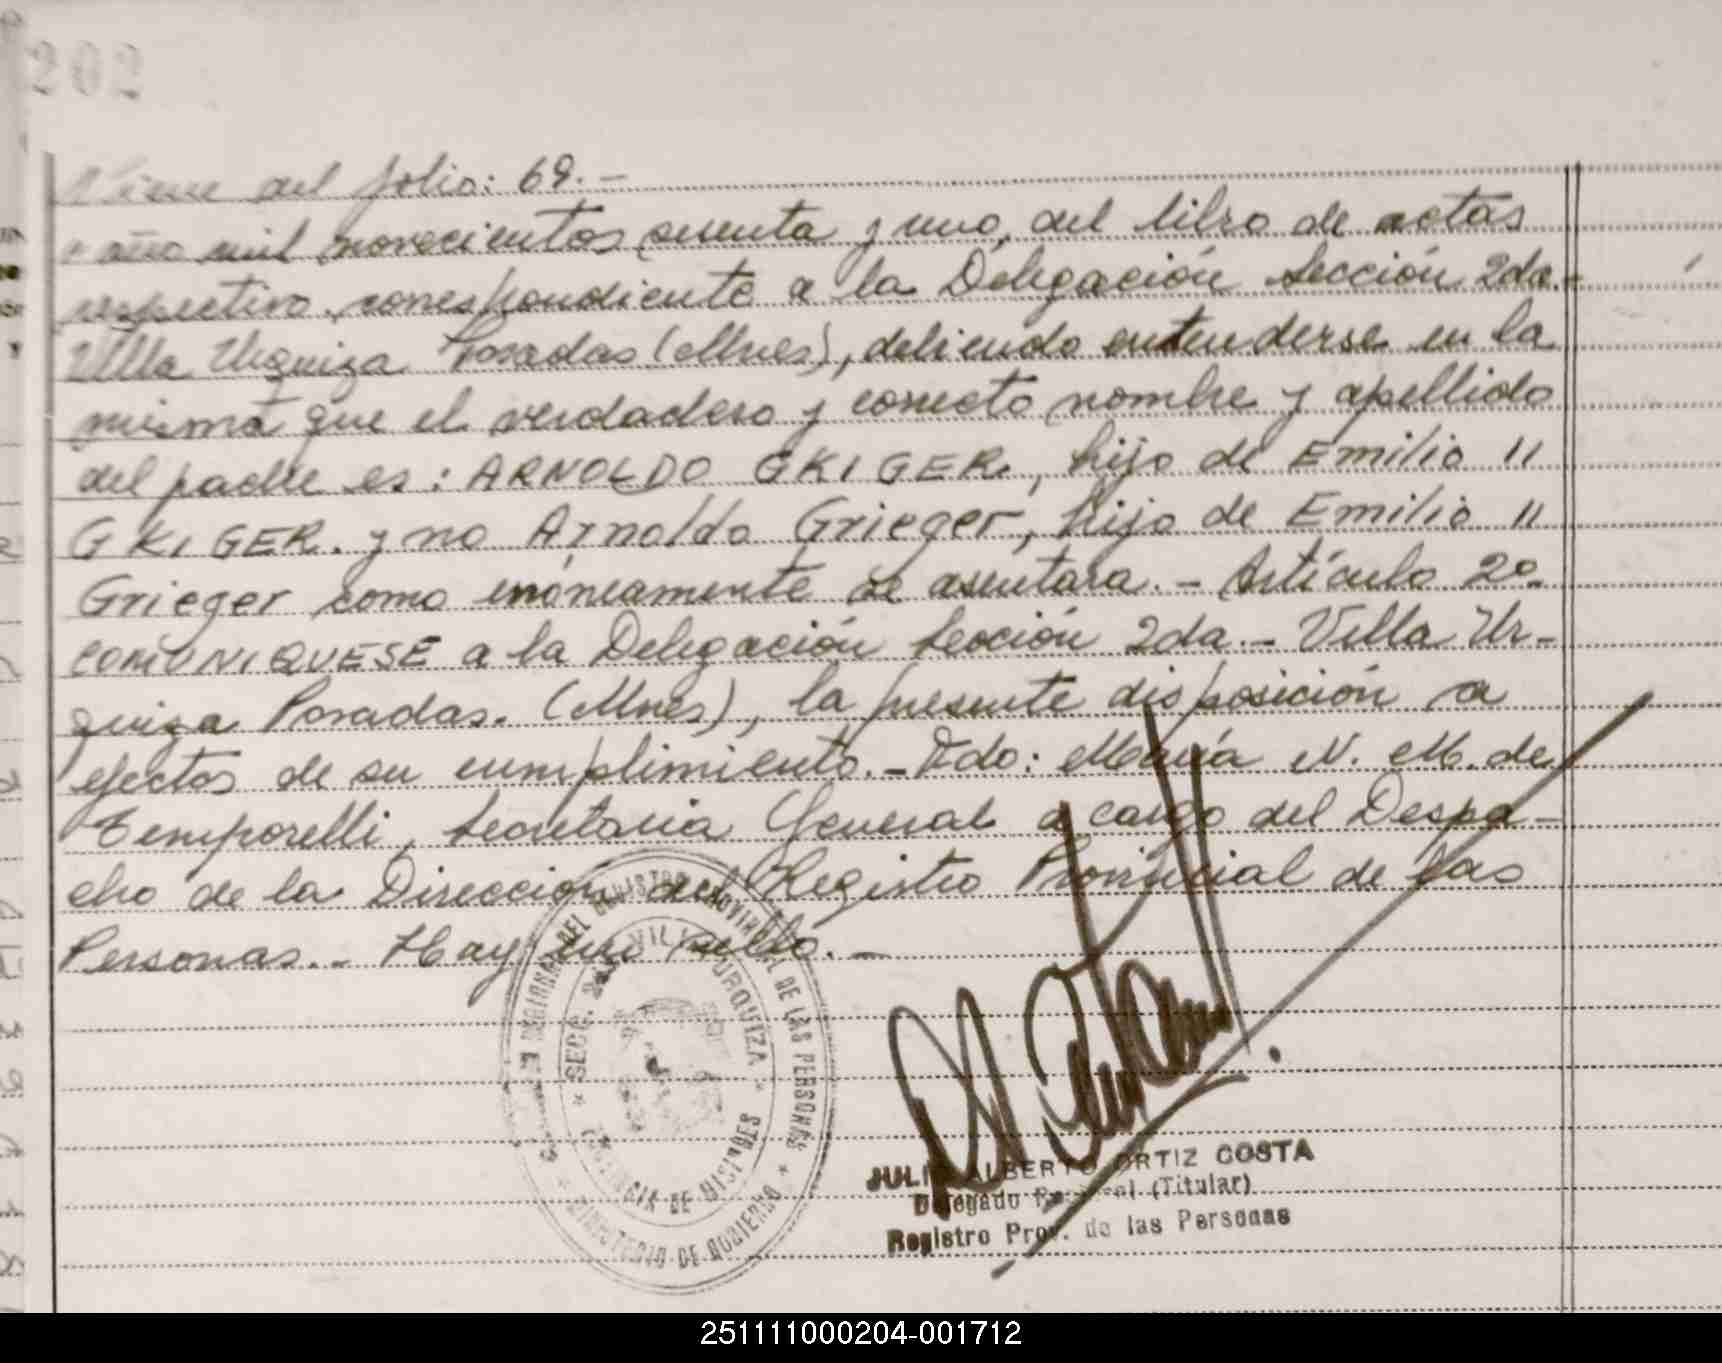 202
Viene del folio: 69.-
año mil novecientos sesenta y uno, del libro de actas
respectivo, correspondiente a la Delegación Sección 2da.-
Villa Urquiza Posadas (Mnes), debiendo entenderse en la
misma que el verdadero y correcto nombre y apellido
del padre es: ARNOLDO GKIGER, hijo de Emilio "
GKIGER. y no Arnoldo Grieger, hijo de Emilio "
Grieger como erróneamente se asentara.- Artículo 2º
COMUNIQUESE a la Delegación Sección 2da.- Villa Ur-
quiza Posadas. (Mnes), la presente disposición a
efectos de su cumplimiento.- Fdo: María N. M. de
Temporelli, Secretaria General a cargo del Despa-
cho de la Dirección del Registro Provincial de las
Personas.- Hay un sello.-
DEL REGISTRO PROVINCIAL DE LAS PERSONAS
SECC. 2da VILLA URQUIZA
PROVINCIA DE MISIONES
MINISTERIO DE GOBIERNO
JULIO ALBERTO ORTIZ COSTA
Delegado (Titular)
Registro Prov. de las Personas
251111000204-001712